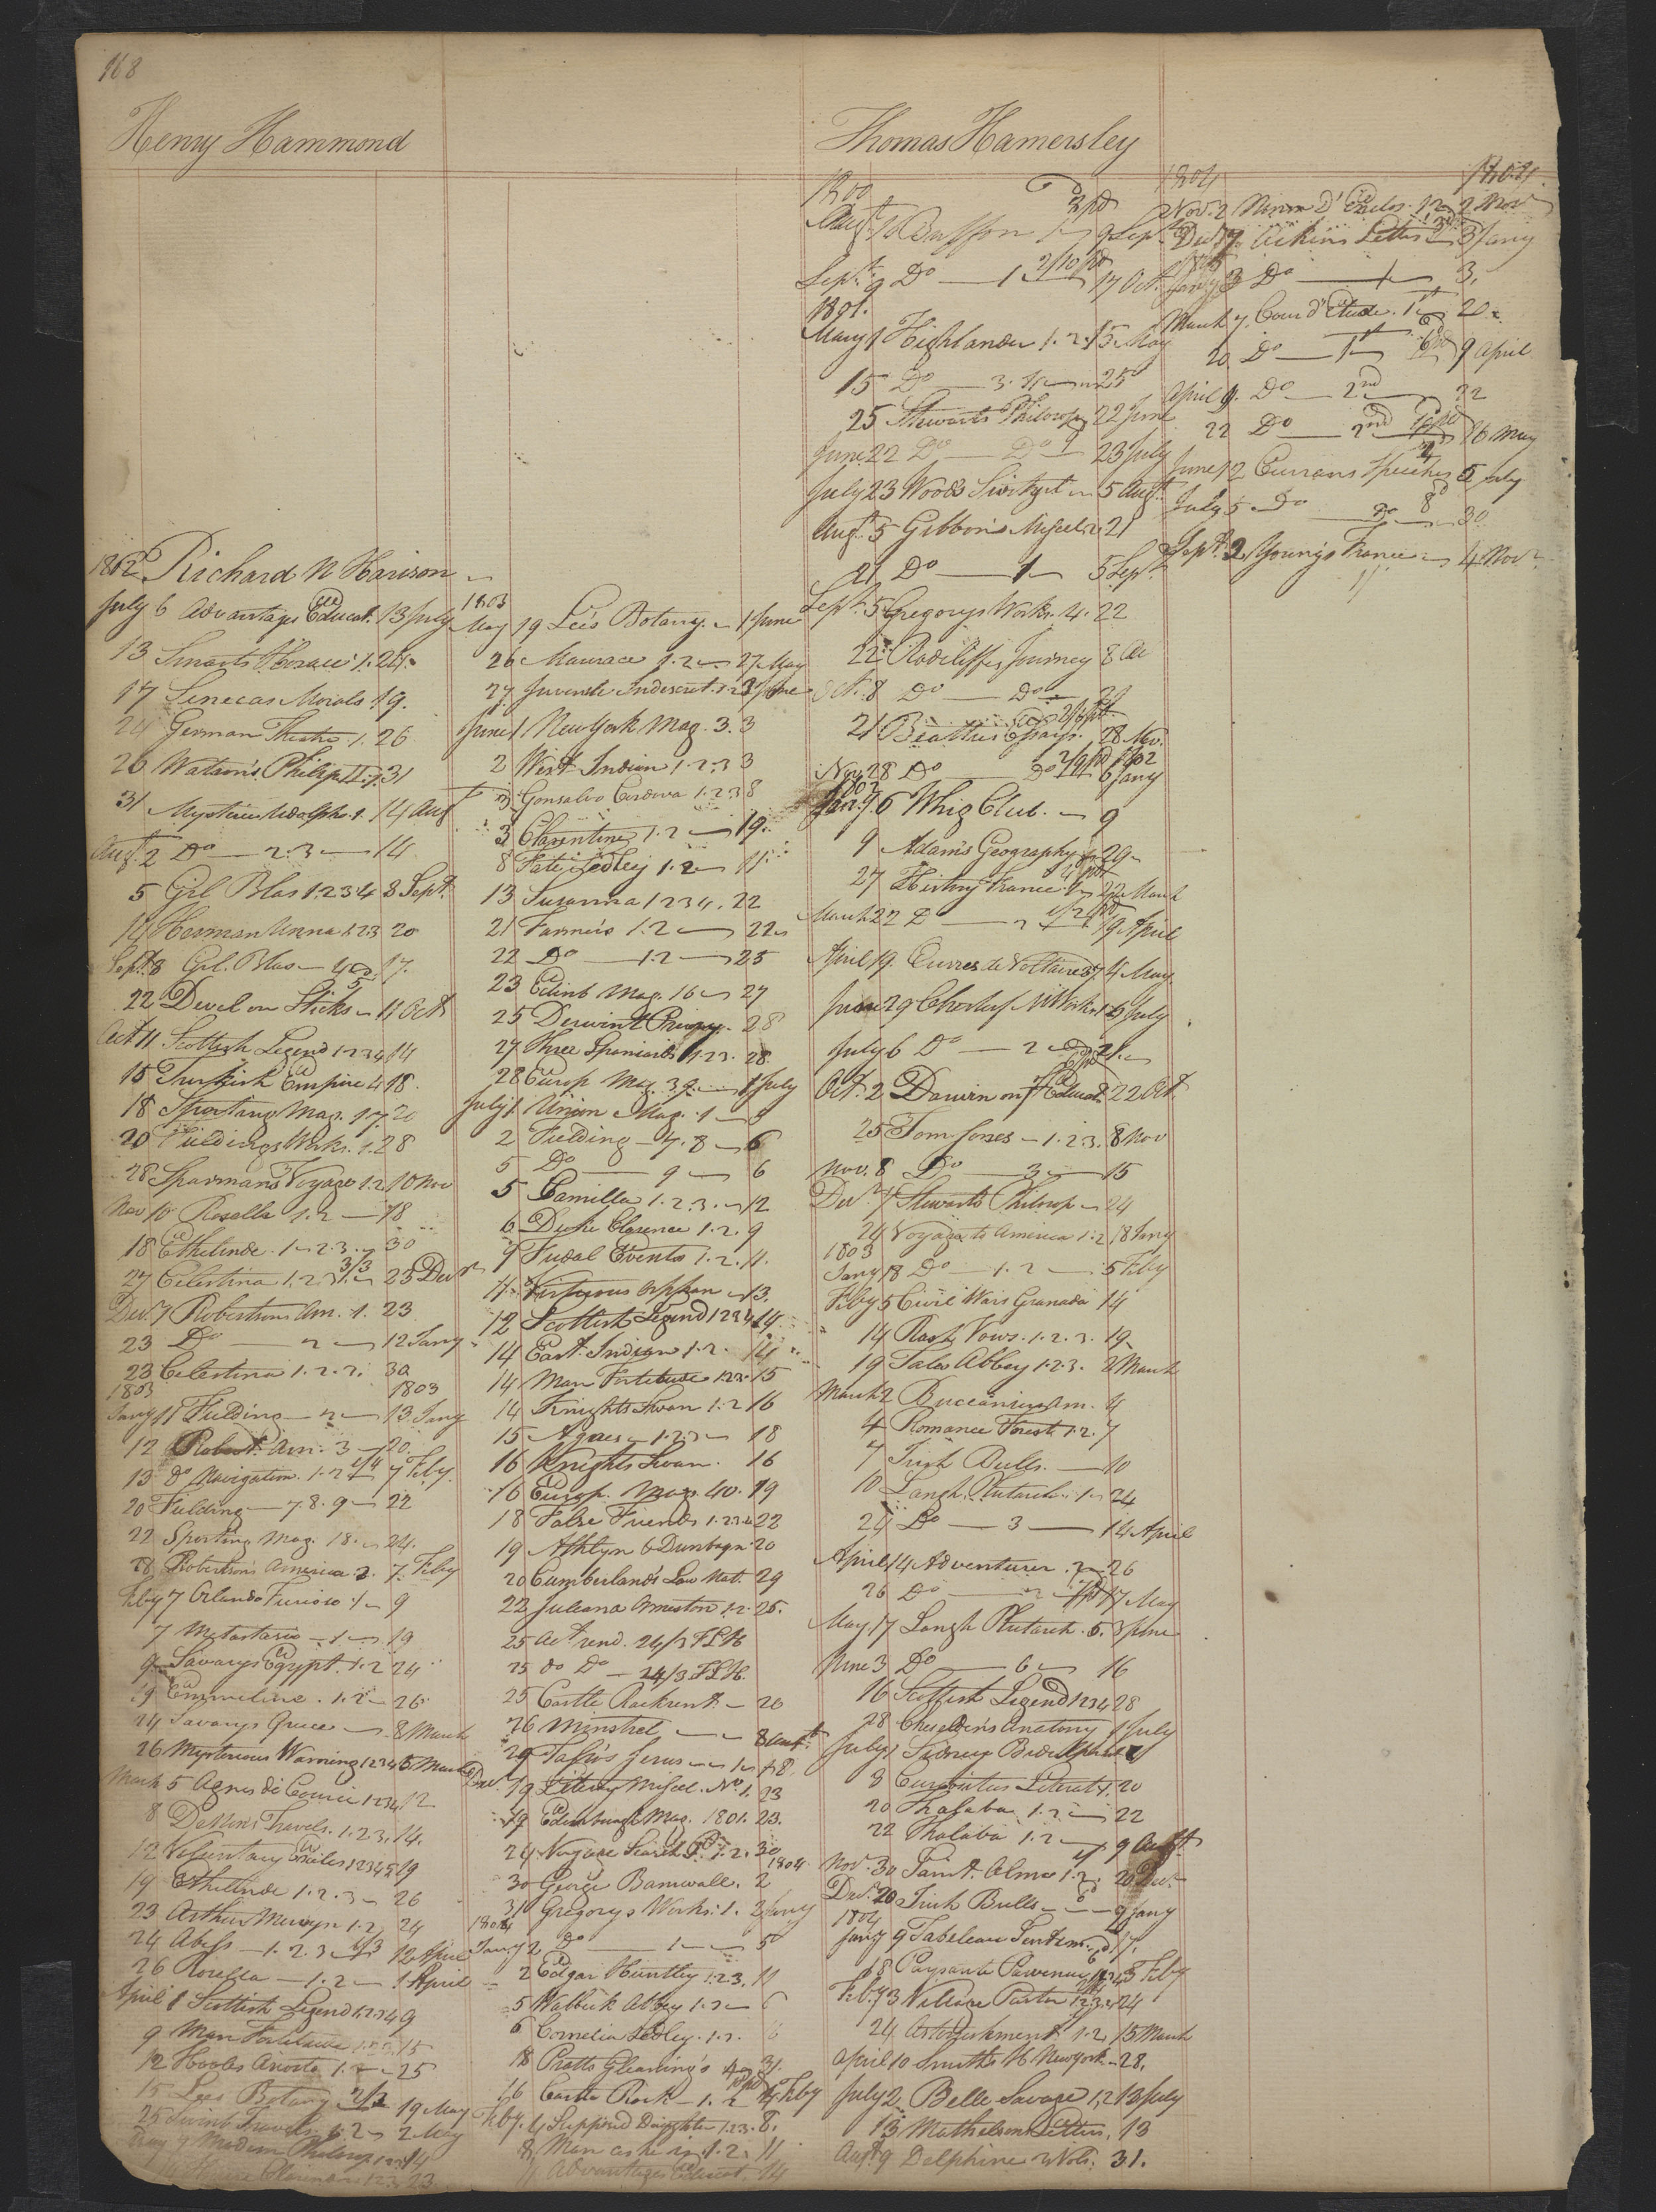 168
Henry Hammond
1802 Richard N Harison
July 6 Advantages Educat. 13 July
13 Smarts Horace 1. 24
17 Senecas Morals 19.
24 German Theatre 1. 26
26 Watson's Philip II 31
31 Mysteries Udolpho 1. 14 Aug
Augt. 2 Do 2.3 14
5 Gil Blas 1.2.3.4 8 Sept.
14 Herman Unna 1.2.3 20
Sept. 8 Gil Blas 4 17.
22 Devil on Sticks 11 Oct
Oct 11 Scottish Legend 1.2.3.4 14
15 Turkish Empire 4 18.
18 Sporting Mag. 17. 20
20 Fieldings Works. 1. 28
28 Sparmans Voyage 1.2 10 Nov
Nov 10 Rosella 1.2 18
18 Ethelinde 1.2.3. 30
27 Celestina 1.2.3 3/3 23 Decr
Decr. 7 Robertsons Am. 1. 23
23 Do 2 12 Jany
23 Celestina 1.2.3. 30
1803 1803
Jany 11 Fielding 2 13 Jany
12 Roberts. Am. 3 20.
13 do Navigation. 1.2 7 Feby.
20 Fielding 7.8.9 22
22 Sporting Mag. 18. 24.
28 Robertson's America 2. 7 Feby
Feby 7 Orlando Furioso 1 9
7 Metastasio 1. 19
9 Savarys Egypt. 1.2 24
19 Emmeline. 1.2 26
24 Savarys Greece 8 March
26 Mysterious Warning 1234 5 March
March 5 Agnes de Courci 1234 12
8 DeNon's Travels. 1.2.3. 14.
12 Voluntary Exiles 12345 19
19 Ethelinde 1.2.3 26
23 Arthur Mervyn 1.2 24
24 Abess 1.2.3 12 April
26 Rosella 1.2 1 April
April 1 Scottish Legend 1234 9
9 Man Fortitude 1.2.3. 15
12 Hooles Ariosto 1.2 25
15 Lees Botany 19 May
25 Travels 1.2 2 May
May 9 Modern Philosop. 123 14
1803
May 19 Lee's Botany. 1 June
26 Mauraice 1.2 27 May
27 Juvenile Indiscret. 1.2 3 June
June 1 New York Mag. 3. 3
2 West Indian 1.2.3 3
3 Gonsalvo Cordova 1.2.3 8
3 Clarentine 1.2 19.
8 Fate Sedley 1.2 11
13 Susanna 1 2 3 4. 22
21 Fanneis 1.2 22
22 Do 1.2 25
23 Edinb Mag. 16 27
25 Derwint Priory. 28
27 Three Spaniards 1.2.3. 28
28 Europ Mag. 39. 1 July
July 1 Union Mag. 1 5
2 Fielding 7.8 6
5 Do 9 6
5 Camilla 1.2.3. 12
6 Duke Clarence 1.2. 9
9 Fudal Events 1.2. 11.
11 Virtuous Orphan 13.
12 Scottish Legend 1234 14
14 East Indian 1.2. 14
14 Man Fortitude 1.2.3. 15
14 Knights Swan 1.2 16
15 Agnes 1.2.3 18
16 Knights Swan. 16
16 Europ. Mag. 40. 19
18 False Friends 1.2.3.4 22
19 Athlyn & Dunbayn 20
20 Cumberland's Law Nat. 29
22 Juliana Ormeston 1.2. 25.
25 Act rend. 24/3 FLH
25 do Do 24/3 FLH.
25 Castle Rackrent 26
26 Minstrel 8 Augt
29 Tasso's Jerus 1 18.
Decr. 19 Literary Miscel. No 1. 23
19 Edinburgh Mag. 1801. 23.
24 Voyage Search P. 1.2. 30
1804
30 George Barnwall. 2
31 Gregorys Works. 1. 2 Jany
1804
Jany 2 Do 1 5
2 Edgar Huntley 1.2.3. 11
5 Walbeck Abbey 1.2 6
6 Cornelia Sedley. 1.2.
18 Pratts Gleaning's 31.
16 Castle Rock 1.2 4 Feby
Feby. 4 Supposed Daughter 1.2.3. 8.
8 Man as he is 1.2. 11
11 Advantages Educat. 14
Thomas Hamersley
1800
Augt Buffon 1 9 Sept
Sept. 9 Do 1 2/10 pd 17 Oct.
1801.
May 1 Highlander 1.2. 15 May
15 Do 3. 25
25 Stewarts Philosop. 22 June
June 22 Do Do 23 July
July 23 Woods Switzert 5 Augt
Augt 5 Gibbons Miscel. 2 21
21 Do 1 5 Sept.
Sept. 5 Gregorys Works. 4. 22
22 Radcliffes Journey 8 Oc
Oct. 8 Do Do 21
21 Beatties Essays. 28 Nov.
Nov 28 Do Do 6 Jany
1802
Jan'y. 6 Whig Club. 9
9 Adams Geography 29
27 History France 1 22 March
March 22 D 2 19 April
April 19. Euvres de Voltaire 37 4 May
June 29 Chesterf. Works. 1 6 July
July 6 Do 2 21.
Oct. 2 Darwin on F Educat. 22 Oct
25 Tom Jones 1.2.3. 8 Nov
Nov. 8 Do 3 15
Decr 7 Stewarts Philosop 24
24 Voyages to America 1.2 18 Jany
1803
Jany 18 Do 1.2 5 Feby
Feby 5 Civil Wars Granada 14
14 Rash Vows. 1.2.3. 19
19 Tales Abbey 1.2.3. 2 March
March 2 Buccaniers Am. 4
4 Romance Forest 1.2. 7
7 Irish Bulls. 10
10 Langh. Plutarch. 1 24
24 Do 3 14 April
April 14 Adventurer. 2 26
26 Do 2 17 May
May 17 Langh Plutarch. 5. 3 June
June 3 Do 6 16
16 Scottish Legend 1234 28
28 Cheselden's Anatomy 1 July
July 1 Sidney Bidulph
8 Curiosities Literat. 1. 20
20 Thalaba 1.2 22
22 Thalaba 1.2 9 Augt
Nov. 30 Saint Alma 1.2. 20 Decr
Decr. 20 Irish Bulls 9 Jany
1804
Jany 9 Tableau Sentem. 17.
18 Paysante Parvenue 1234 3 Feby
Feby 3 Village Pastor 1.2.3 24
24 Astonishment 1.2. 15 March
April 10 Smiths H Newyork 28.
July 2 Belle Savage 1,2 13 July
13 Mathelson Letters. 13
Augt 9 Delphine 2 Vols. 31.
1804 1804.
Nov. 2 Ninon D' Enclos. 1.2 2 Nov
Decr 17 Aikins Letters 3 Jany
Jany 3 Do 1 3.
March 7. Cour d'Etude. 1st 20
20 Do 1st 9 April
April 9. Do 2nd 22
22 Do 2nd 26 May
June 12 Currans Speeches 5 July
July 5 Do Do 30
Sept. 2 Young's France 4 Novr.